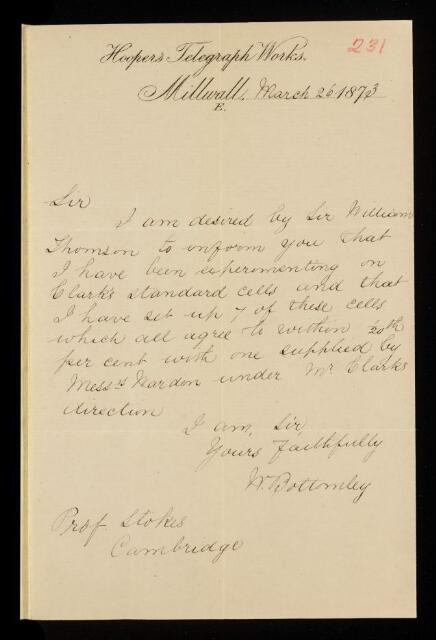 231
Hoopers Telegraph Works.
Millwall, March 26 1873
E.
Sir
I am desired by Sir William
Thomson to inform you that
I have been experimenting on
Clark's standard cells and that
I have set up 7 of these cells
which all agree to within 20th
per cent with one supplied by
Messrs Warden under Mr Clarks
direction
I am, Sir
Yours faithfully
W. Bottomley
Prof. Stokes
Cambridge